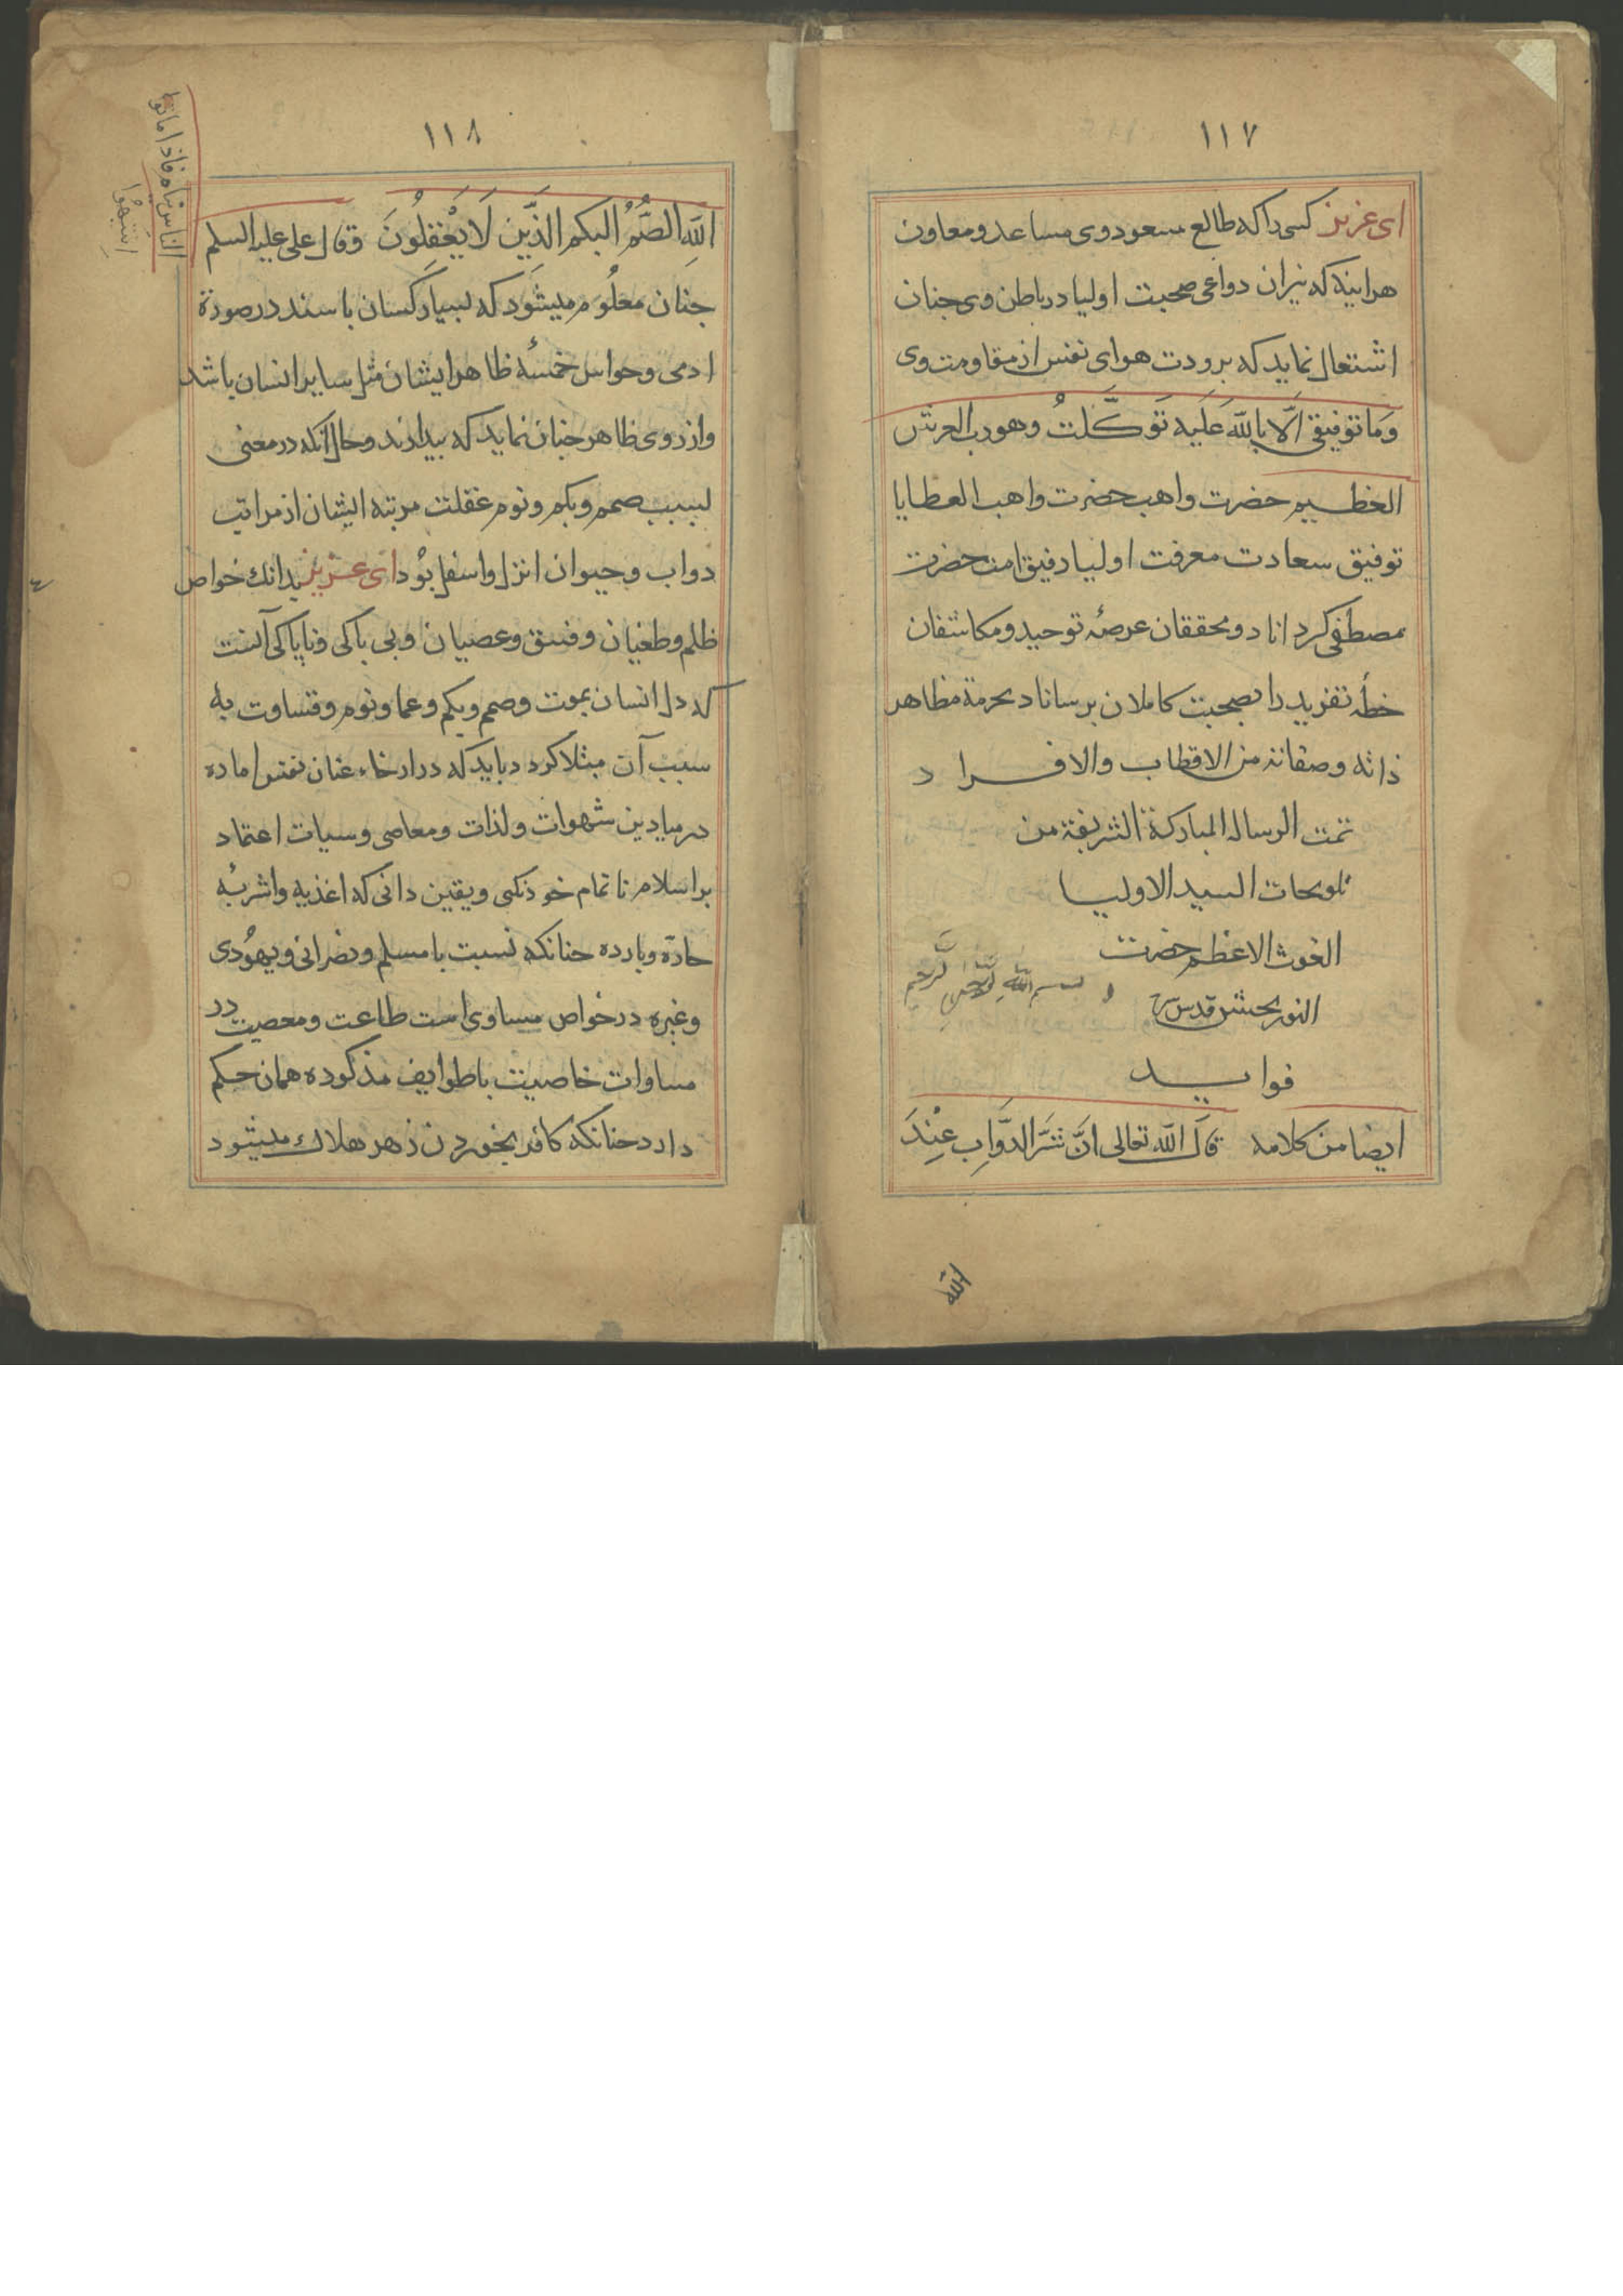 ١١٧
ای عزیز کسی را که طالع مسعود وی مساعد و معاون
هراینه که نیران دواعی صحبت اولیا در باطن وی چنان
اشتعال نماید که برودت هوای نفس از مقاومت وی
وَمَا توفیقی اِلَّا بِاللّٰه عَلَیه تَوَکَّلتُ وهو رب العرش
العظیم حضرت واهب حضرت واهب العطایا
توفیق سعادت معرفت اولیا رفیق امت حضرت
مصطفی کرداناد و محققان عرصهٔ توحید و مکاشفان
خطهٔ تفرید را بصحبت کاملان برساناد بحرمة مظاهر
ذاته وصفاته من الاقطاب والافراد
تمت الرساله المبارکة الشریفة من
تلویحات السید الاولیا
الغوث الاعظم حضرت
النور بخش قدس سره
بسم الله الرحمن الرحیم
فواید
ایضا من کلامه قال اللّٰه تعالی اِنَّ شَرَّ الدَّوَابِ عِنْدَ
الله
١١٨
اللّٰهِ الصُّمُّ البکم الَّذِین لَا یَعْقِلُونَ وقال علی علیه السلم
الناس نیام فاذا ماتوا
انتبهوا
چنان معلُوم میشَود که بسیار کسان باسند در صورة
ادمی و حواس خمسهٔ ظاهر ایشان مثل سایر انسان باشد
واز روی ظاهر چنان نماید که بیدارند وحال آنکه در معنی
بسبب صمم و بکم و نوم غفلت مرتبه ایشان از مراتب
دواب و حیوان انزل واسفل بوُد ای عزیز بدانک خواص
ظلم وطغیان وفسق وعصیان وبی باکی وناپاکی آنست
که دل انسان بموت و صمم و بکم و عما و نوم و قساوت به
سبب آن مبتلا کردد باید که در ارخاء عنان نفس اماره
در میادین شهوات ولذات ومعاصی وسیات اعتماد
بر اسلام ناتمام خود نکنی ویقین دانی که اغذیه واشربهٔ
حارّه وبارده چنانکه نسبت با مسلم ونصرانی ویهوُدی
وغیره در خواص مساوی است طاعت ومعصیت در
مساوات خاصیت با طوایف مذکوره همان حکم
دارد چنانکه کافر بخوردن زهر هلاک میشود